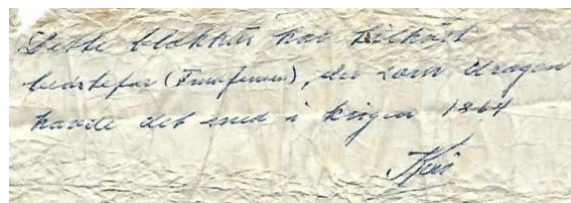 Dette blækhus har tilhørt
bedstefar (Funfennen), der som dragon
havde det med i krigen 1864